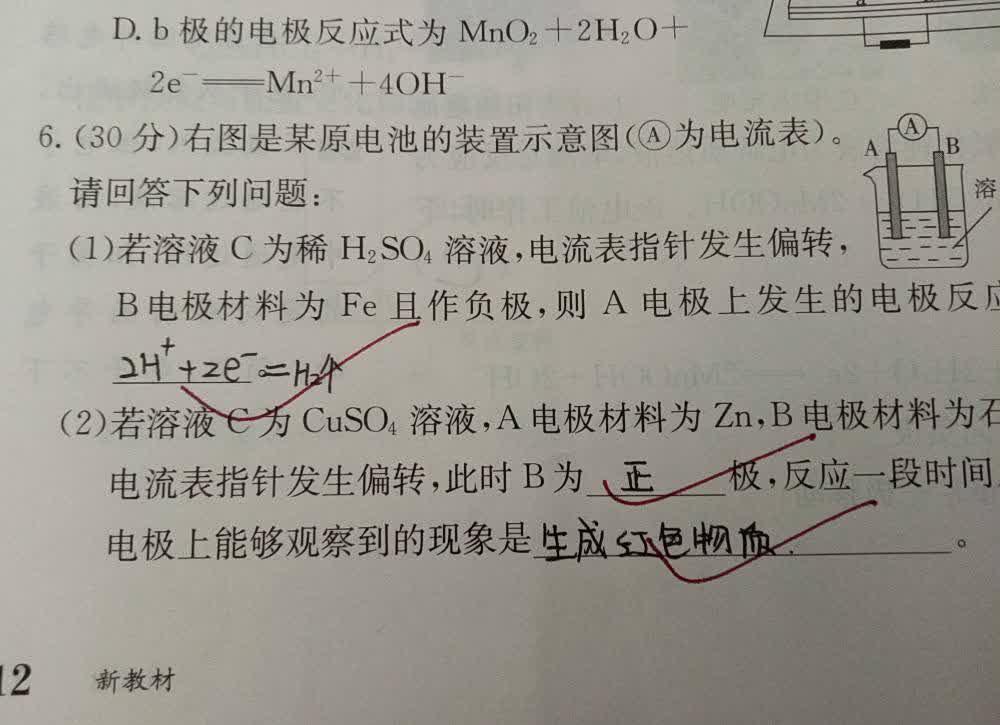 D. b 极的电极反应式为 MnO₂+2H₂O+
2e⁻══Mn²⁺+4OH⁻
6. (30 分)右图是某原电池的装置示意图(Ⓐ为电流表)。
请回答下列问题:
A
A
B
溶
(1)若溶液 C 为稀 H₂SO₄ 溶液,电流表指针发生偏转,
B 电极材料为 Fe 且作负极,则 A 电极上发生的电极反应
2H⁺+2e⁻=H₂↑
(2)若溶液 C 为 CuSO₄ 溶液,A 电极材料为 Zn,B 电极材料为石
电流表指针发生偏转,此时 B 为 正 极,反应一段时间
电极上能够观察到的现象是 生成红色物质. 。
12 新教材